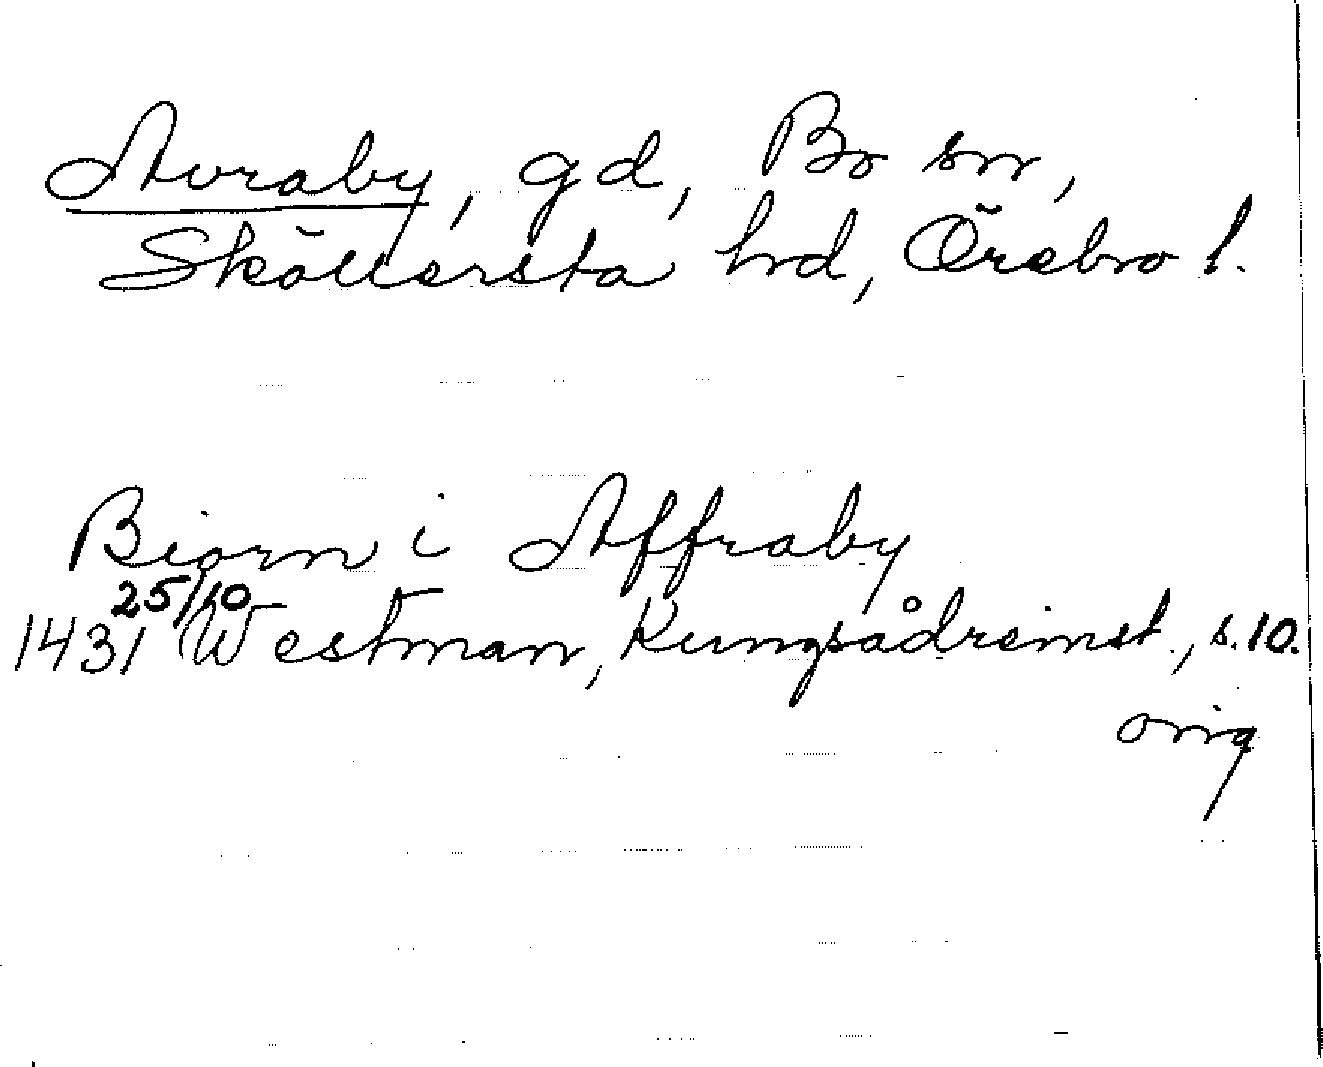 Avraby, gd, Bo sn,
Sköllersta hrd, Örebro l.
Biorn i Affraby
25/10
1431 Westman, Kungsådreinst., s. 10.
orig